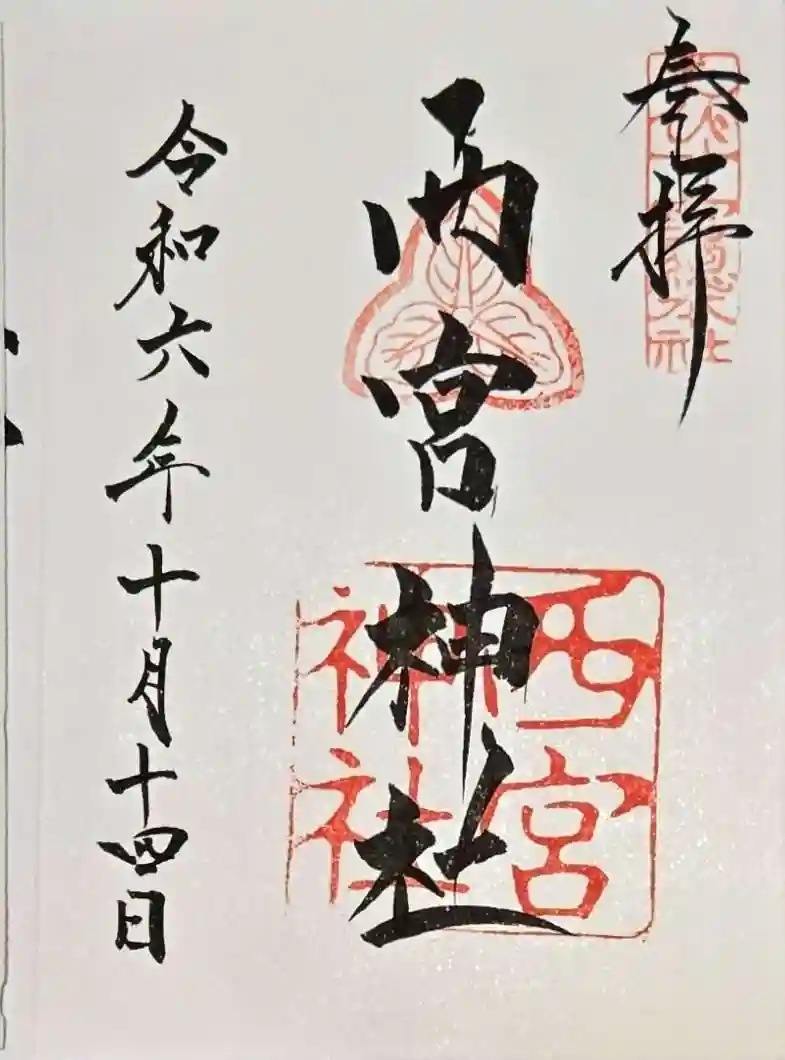 奉拝
總本社
西宮神社
西宮
神社
令和六年十月十四日